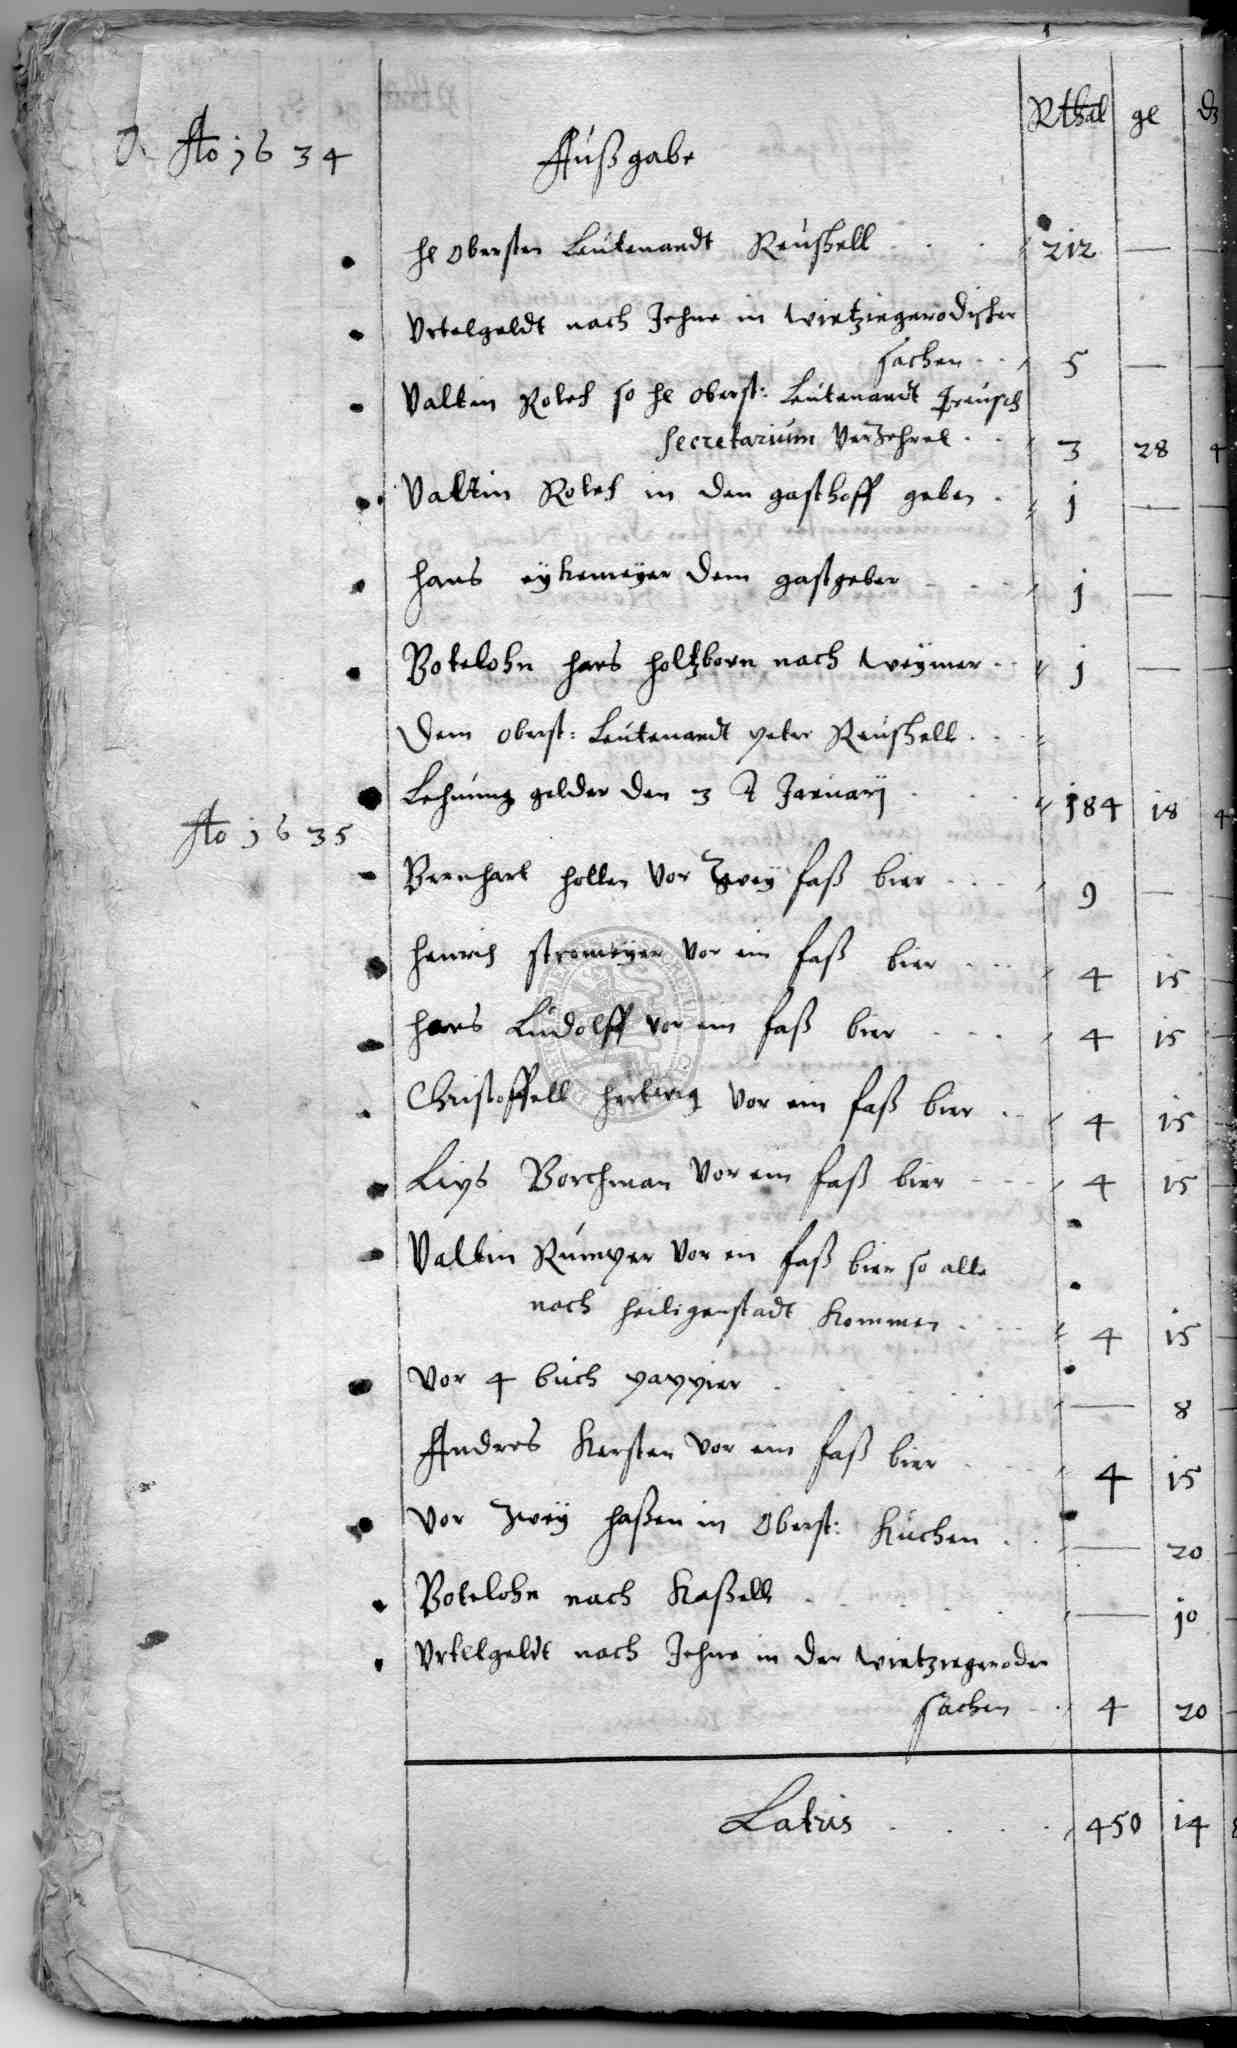 Rthal gl d
Ao 1634 Außgabe
hl obersten Leutenandt Reuschell 212 — —
Vrtelgeldt nach Jehne in wintzingerodischer
sachen 5 — —
Valtin Rolef so hl oberst: Leutenandt
Secretarium verzehret 3 28 4
Valtin Rolef in den gasthoff geben 1 — —
hans eykemeyer dem gastgeber 1 — —
Botelohn hans holtzborn nach weymer 1 — —
Dem oberst: Leutenandt peter Reuschell
Lehnung gelder den 3 Januarij 184 18 4
Ao 1635
Bernhart hollen vor zwey faß bier 9 —
henrich stromeyer vor ein faß bier 4 15
hans Ludolff vor ein faß bier 4 15
Christoffell hertwig vor ein faß bier 4 15
Borchman vor ein faß bier 4 15
Valtin Rumper vor en faß bier so alle
nach heiligenstadt kommen 4 15
vor 4 buch pappier — 8
Andres Kersten vor ein faß bier 4 15
vor zwey haßen in oberst: Kuchen — 20
Botelohn nach Kaßell — 10
Vrtelgeldt nach Jehne in der wintzingeroder
sachen 4 20
Latus 450 14 8